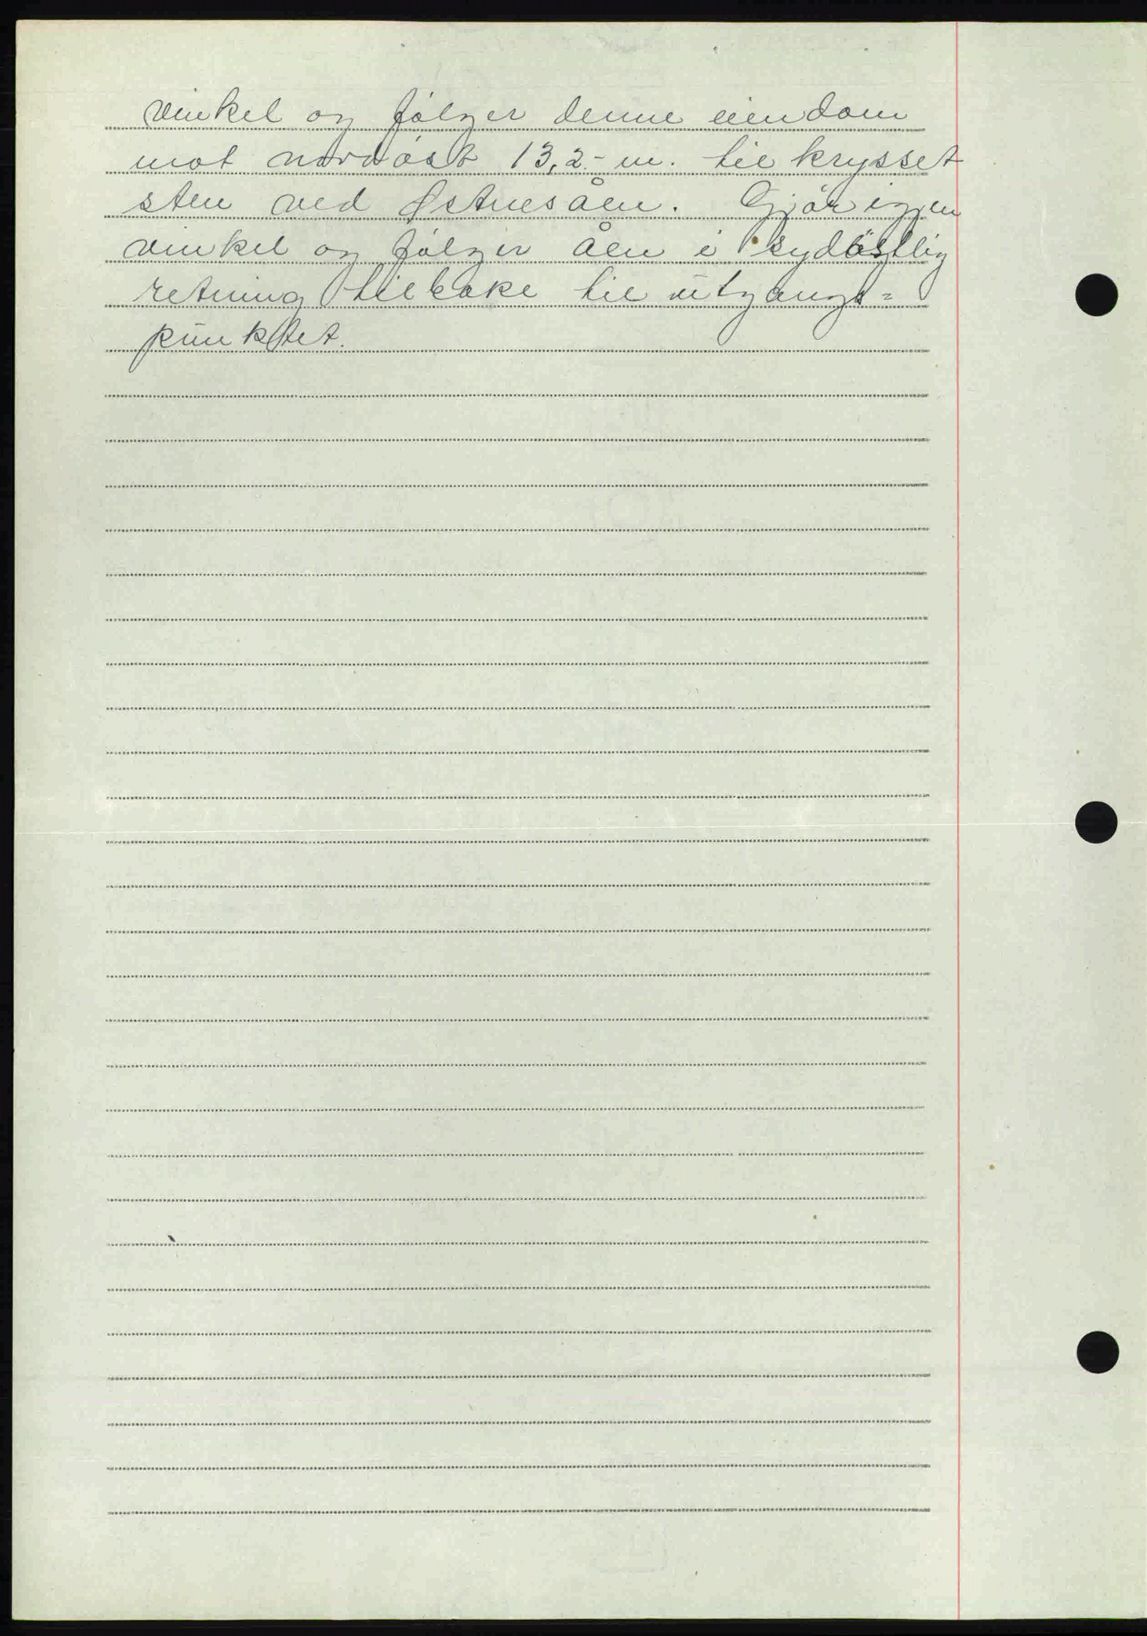 vinkel og følger denne eiendom
mot nordøst 13,2 - m. til krysset
sten ved Østnesåen. Gjør igjen
vinkel og følger åen i sydøstlig
retning tilbake til utgangs=
punktet.